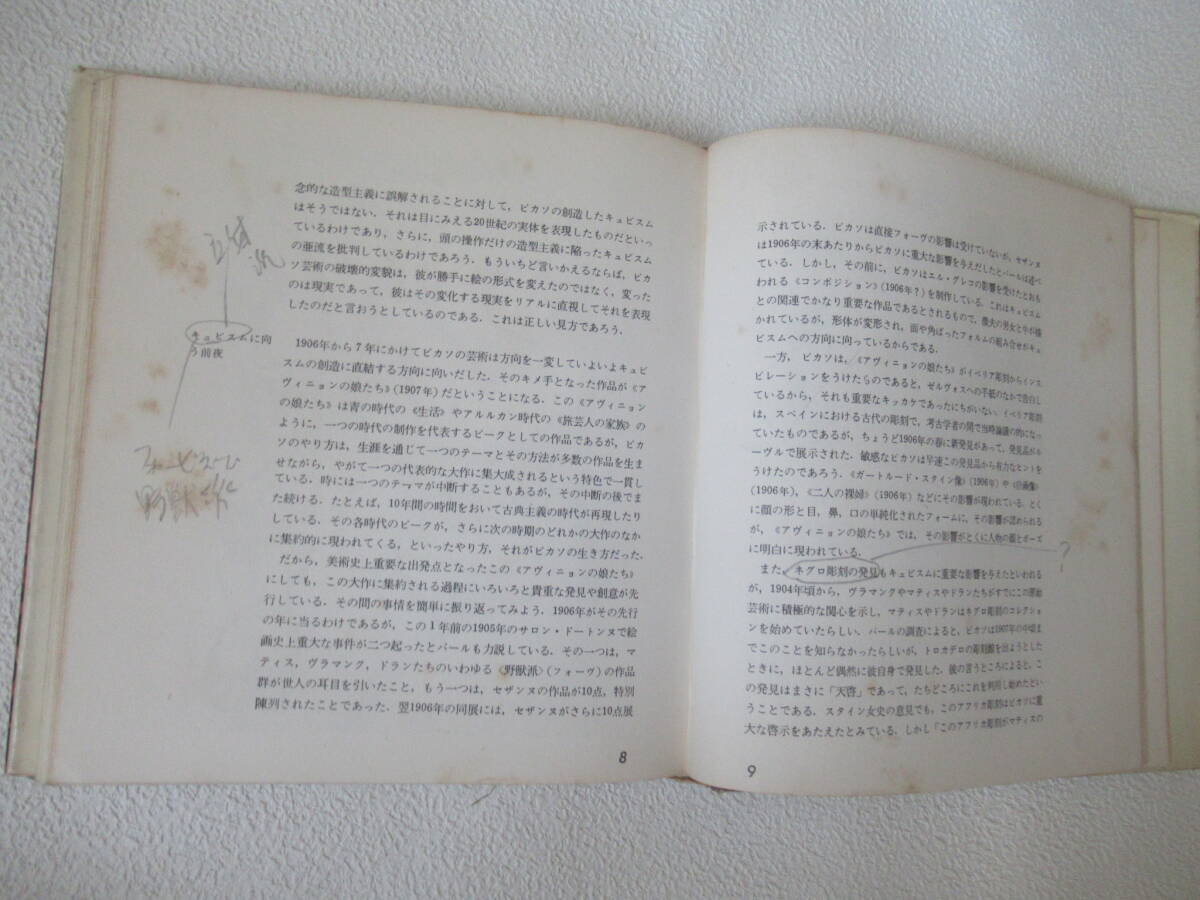 立体派
キュビスムに向
う前夜
フォービズム
野獣派
念的な造型主義に誤解されることに対して，ピカソの創造したキュビスム
はそうではない．それは目にみえる20世紀の実体を表現したものだといっ
ているわけであり，さらに，頭の操作だけの造型主義に陥ったキュビスム
の亜流を批判しているわけであろう．もういちど言いかえるならば，ピカ
ソ芸術の破壊的変貌は，彼が勝手に絵の形式を変えたのではなく，変った
のは現実であって，彼はその変化する現実をリアルに直視してそれを表現
したのだと言おうとしているのである．これは正しい見方であろう．
1906年から7年にかけてピカソの芸術は方向を一変していよいよキュビ
スムの創造に直結する方向に向いだした．そのキメ手となった作品が《ア
ヴィニョンの娘たち》（1907年）だということになる．この《アヴィニョン
の娘たち》は青の時代の《生活》やアルルカン時代の《旅芸人の家族》の
ように，一つの時代の制作を代表するピークとしての作品であるが，ピカ
ソのやり方は，生涯を通じて一つのテーマとその方法が多数の作品を生ま
せながら，やがて一つの代表的な大作に集大成されるという特色で一貫し
ている．時には一つのテーマが中断することもあるが，その中断の後でま
た続ける．たとえば，10年間の時間をおいて古典主義の時代が再現したり
している．その各時代のピークが，さらに次の時期のどれかの大作のなか
に集約的に現われてくる，といったやり方，それがピカソの生き方だった．
だから，美術史上重要な出発点となったこの《アヴィニョンの娘たち》
にしても，この大作に集約される過程にいろいろと貴重な発見や創意が先
行している．その間の事情を簡単に振り返ってみよう．1906年がその先行
の年に当るわけであるが，この1年前の1905年のサロン・ドートンヌで絵
画史上重大な事件が二つ起ったとバールも力説している．その一つは，マ
ティス，ヴラマンク，ドランたちのいわゆる《野獣派》（フォーヴ）の作品
群が世人の耳目を引いたこと，もう一つは，セザンヌの作品が10点，特別
陳列されたことであった．翌1906年の同展には，セザンヌがさらに10点展
8
示されている．ピカソは直接フォーヴの影響は受けていないが，セザンヌ
は1906年の末あたりからピカソに重大な影響を与えだしたとバールは述べ
ている．しかし，その前に，ピカソはエル・グレコの影響を受けたとおも
われる《コンポジション》（1906年？）を制作している．これはキュビスム
との関連でかなり重要な作品であるとされるもので，農夫の男女と牛が描
かれているが，形体が変形され，面や角ばったフォルムの組み合せがキュ
ビスムへの方向に向っているからである．
一方，ピカソは，《アヴィニョンの娘たち》がイベリア彫刻からインス
ピレーションをうけたものであると，ゼルヴォスへの手紙のなかで告白し
ているから，それも重要なキッカケであったにちがいない．イベリア彫刻
は，スペインにおける古代の彫刻で，考古学者の間で当時論議の的になっ
ていたものであるが，ちょうど1906年の春に新発見があって，発見品がル
ーヴルで展示された．敏感なピカソは早速この発見品から有力なヒントを
うけたのであろう．《ガートルード・スタイン像》（1906年）や《自画像》
（1906年），《二人の裸婦》（1906年）などにその影響が現われている．とく
に顔の形と目，鼻，口の単純化されたフォームに，その影響が認められる
が，《アヴィニョンの娘たち》では，その影響がとくに人物の顔とポーズ
に明白に現われている．
?
また，ネグロ彫刻の発見もキュビスムに重要な影響を与えたといわれる
が，1904年頃から，ヴラマンクやマティスやドランたちがすでにこの原始
芸術に積極的な関心を示し，マティスやドランはネグロ彫刻のコレクショ
ンを始めていたらしい．バールの調査によると，ピカソは1907年の中頃ま
でこのことを知らなかったらしいが，トロカデロの彫刻館を出ようとした
ときに，ほとんど偶然に彼自身で発見した．彼の言うところによると，こ
の発見はまさに「天啓」であって，たちどころにこれを利用し始めたとい
うことである．スタイン女史の意見でも，このアフリカ彫刻はピカソに重
大な啓示をあたえたとみている．しかし「このアフリカ彫刻がマティスの
9